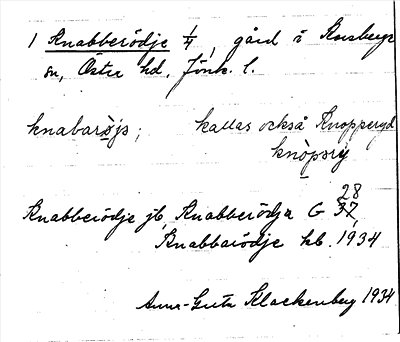 1 Knabberödje 1/4, gård i Korsberga
sn, Östra hd, Jönk. l.
knabaròjs; kallas också Knopperyd
knòpsrý
28
Knabberödje jb, Knabberödja G 37,
Knabbarödje hb. 1934
Anna-Greta Klackenberg 1934